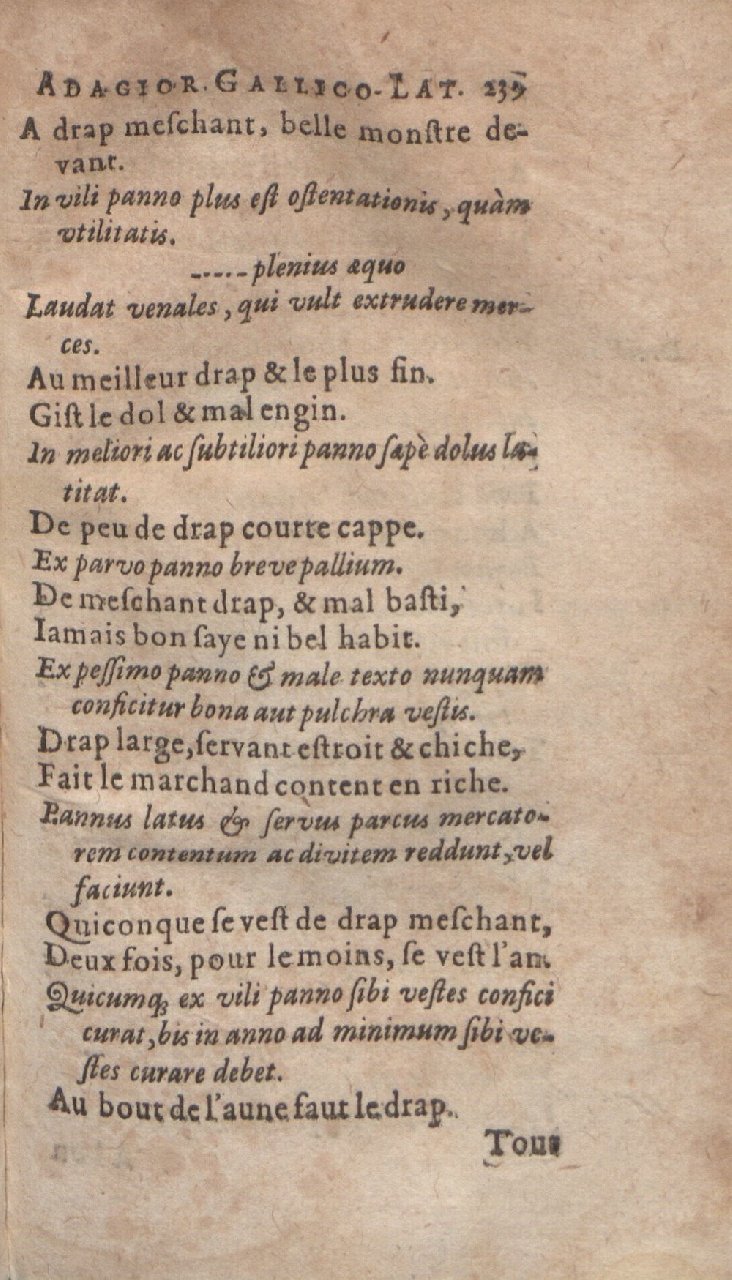 ADAGIOR. GALLICO-LAT. 239
A drap meſchant, belle monſtre de-
vant.
In vili panno plus eſt oſtentationis, quàm
vtilitatis.
----- plenius æquo
Laudat venales, qui vult extrudere mer-
ces.
Au meilleur drap & le plus fin.
Giſt le dol & mal engin.
In meliori ac ſubtiliori panno ſæpè dolus la-
titat.
De peu de drap courte cappe.
Ex parvo panno breve pallium.
De meſchant drap, & mal baſti,
Iamais bon ſaye ni bel habit.
Ex peſſimo panno & male texto nunquam
conficitur bona aut pulchra veſtis.
Drap large, ſervant eſtroit & chiche,
Fait le marchand content en riche.
Pannus latus & ſervus parcus mercato-
rem contentum ac divitem reddunt, vel
faciunt.
Quiconque ſe veſt de drap meſchant,
Deux fois, pour le moins, ſe veſt l'an.
Quicumq; ex vili panno ſibi veſtes confici
curat, bis in anno ad minimum ſibi ve-
ſtes curare debet.
Au bout de l'aune faut le drap.
Tous